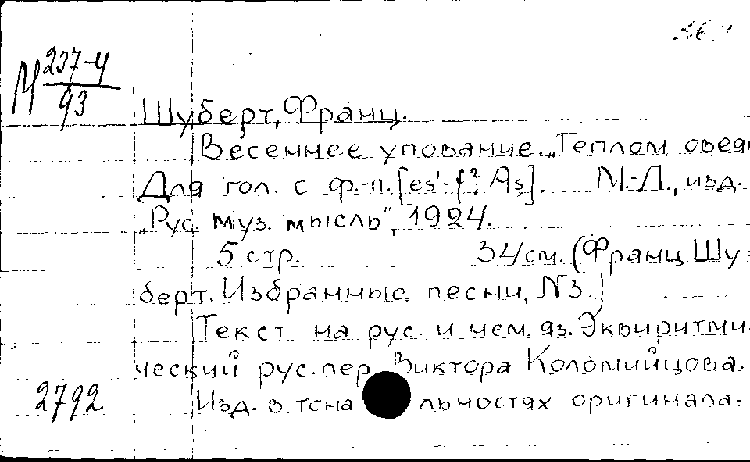 М 237-4
93
Шуберт, Франц.
Весеннее упование. „Теплом овея
Для гол. с ф-п. [es¹-f² As]. М-Л., изд.
„Рус. муз. мысль", 1924.
5 стр. 34 см. (Франц Шу-
берт. Избранные песни, N3.)
Текст на рус. и нем. яз. Эквиритми-
ческий рус. пер. Виктора Коломийцова.
2792
Изд. в тона льностях оригинала.